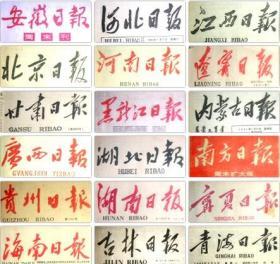 安徽日報
周末刊
河北日報
HEBEI RIBAO
江西日報
JIANGXI RIBAO
北京日報
河南日報
HENAN RIBAO
遼寧日報
LIAONING RIBAO
甘肅日報
GANSU RIBAO
黑龍江日報
內蒙古日報
廣西日報
GVANGJSIH YIZBAO
湖北日報
HUBEI RIBAO
南方日報
周末扩大版
貴州日報
GUIZHOU RIBAO
湖南日報
HUNAN RIBAO
寧夏日報
NINGXIA RIBAO
海南日報
吉林日報
JILIN RIBAO
青海日報
QINGHAI RIBAO